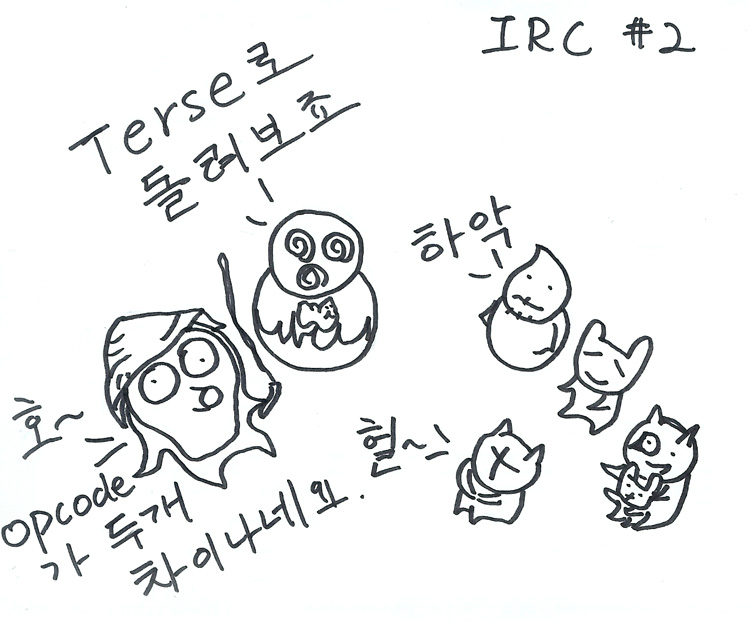 IRC #2
Terse로
돌려보죠
하악
호~
opcode
가 두개
차이나네요.
헐~ㅅ